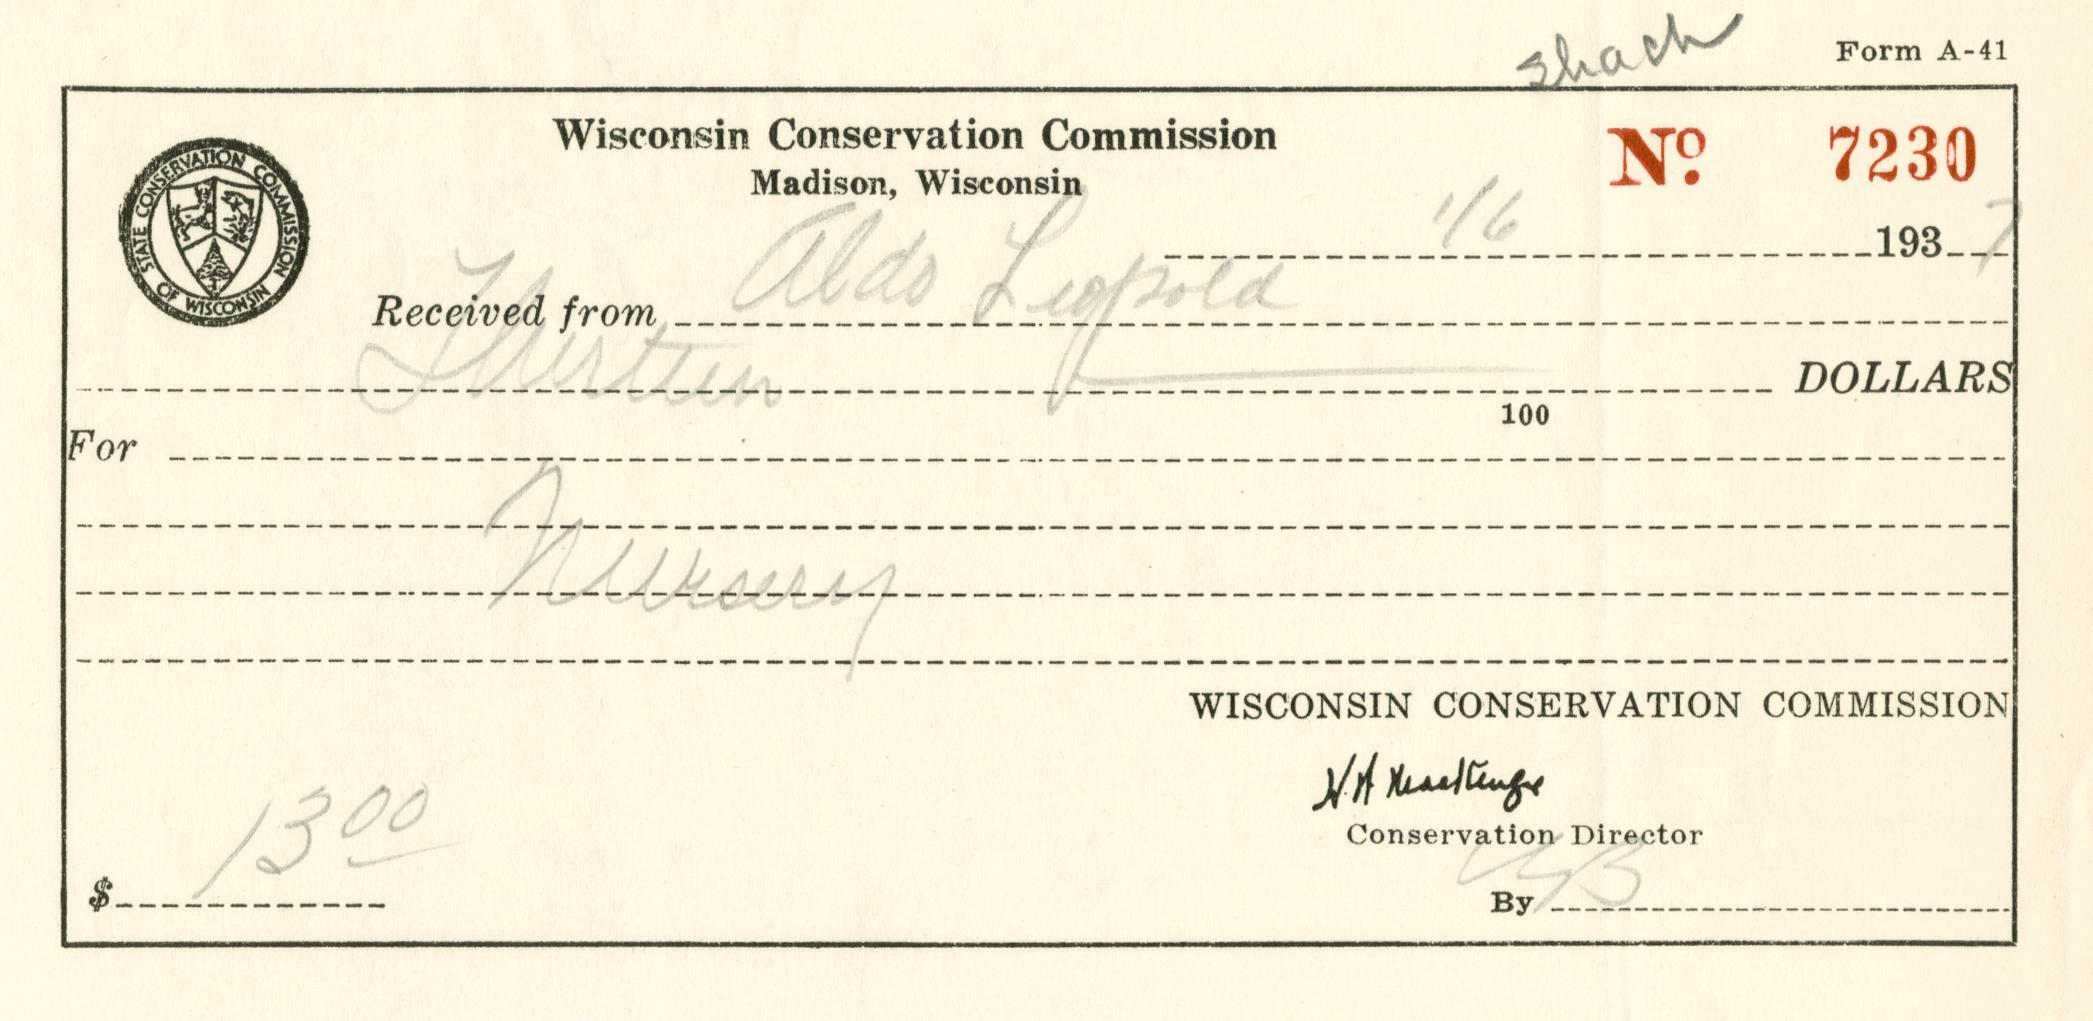 Shack
Form A-41
Wisconsin Conservation Commission
Madison, Wisconsin
STATE CONSERVATION COMMISSION OF WISCONSIN
No. 7230
1/6 1937
Received from Aldo Leopold
Thirteen DOLLARS
100
For
Nursery
WISCONSIN CONSERVATION COMMISSION
H W MacKenzie
Conservation Director
$ 13 00
By